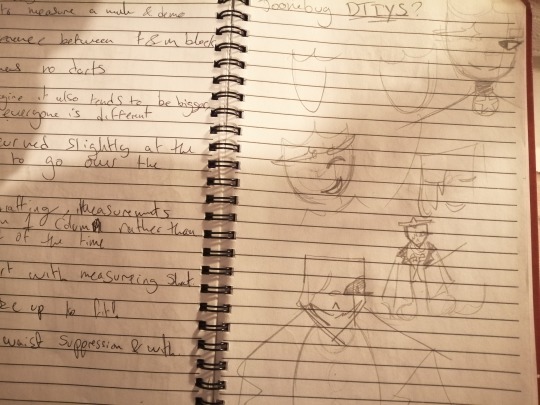 to measure a male & demo
between f & m block
has no darts
it also tends to be bigger
everyone is different
turned slightly at the
to go over the
drafting, measurements
in 1 column rather than
of the time
start with measuring sheet
up to fit!
waist suppression & with
goonebug DITYS?